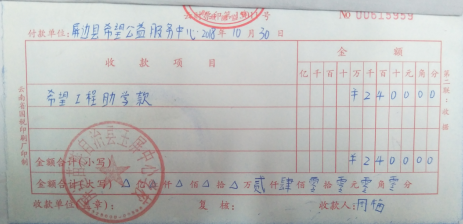 No 00615959
付款单位:屏边县希望公益服务中心 2018年10月30日
收款项目
金额
亿千百十万千百十元角分
希望工程助学款
¥240000
金额合计(小写)
¥240000
金额合计(大写) 亿 仟 佰 拾 万 贰仟肆佰零拾零元零角零分
收款单位(盖章):
复核:
收款人:
云南省国税印刷厂印制
第二联:收据